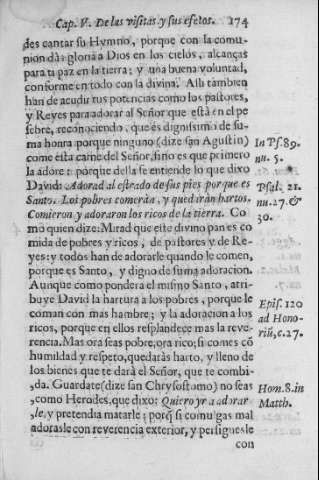 Cap. V. De las visitas y sus efetos. 274
des cantar su Hymno, porque con la comu-
nion dàs gloria a Dios en los cielos, alcanças
para ti paz en la tierra; y una buena voluntad,
conforme en todo con la divina. Assi tambien
han de acudir tus potencias como los pastores,
y Reyes para adorar al Señor que està en el pe
sebre, reconociendo, que es dignissimo de su-
ma honra porque ninguno (dize san Agustin)
come esta carne del Señor, sino es que primero
la adore: porque della se entiende lo que dixo
David: Adorad al estrado de sus pies porque es
Santo. Los pobres comeràn, y quedaràn hartos.
Comieron y adoraron los ricos de la tierra. Co
mo quien dize: Mirad que este divino pan es co
mida de pobres y ricos, de pastores y de Re-
yes: y todos han de adorarle quando le comen,
porque es Santo, y digno de suma adoracion.
Aunque como pondera el mismo Santo, atri-
buye David la hartura a los pobres, porque le
coman con mas hambre; y la adoracion a los
ricos, porque en ellos resplandece mas la reve-
rencia. Mas ora seas pobre, ora rico; si comes cõ
humildad y respeto, quedaràs harto, y lleno de
los bienes que te darà el Señor, que te combi-
da. Guardate (dize san Chrysostomo) no seas
como Herodes, que dixo: Quiero yr a adorar
le, y pretendia matarle; porq̃ si comulgas mal
adorasle con reverencia exterior, y persiguesle
con
In Ps. 89.
nu. 5.
Psal. 21.
nu. 27. &
30.
Epis. 120
ad Hono-
riũ, c. 27.
Hom. 8. in
Matth.